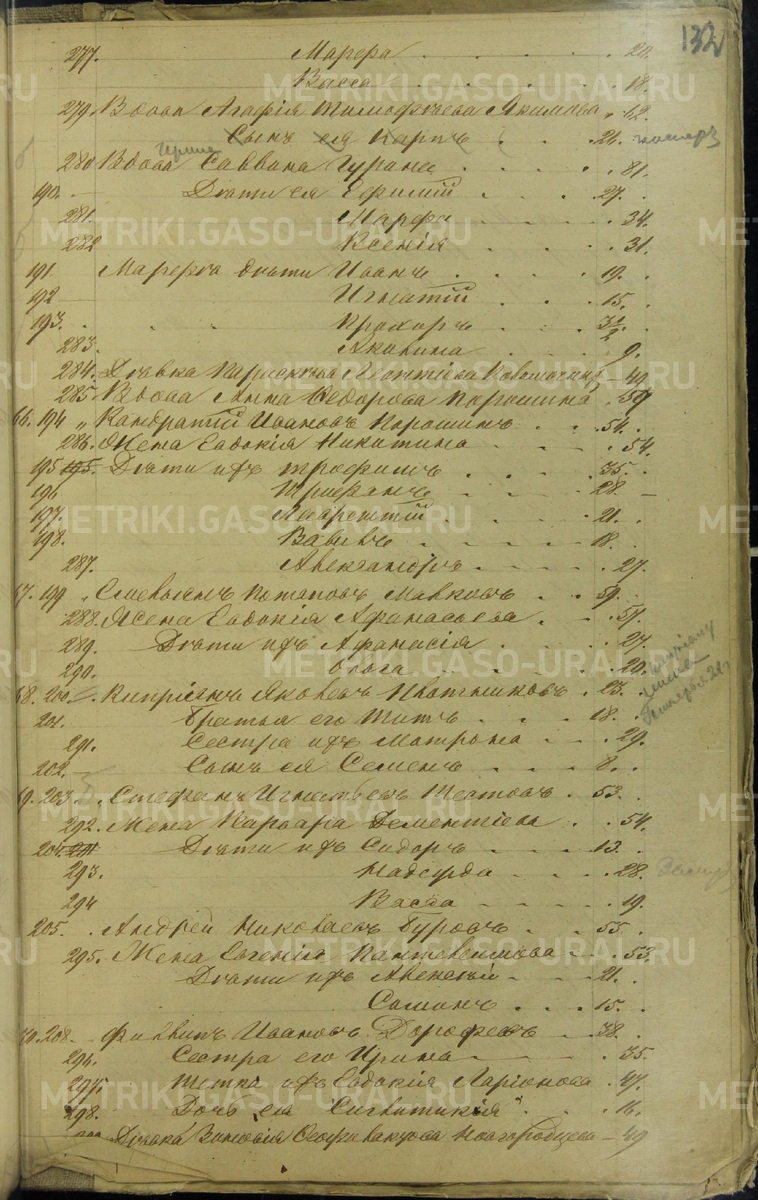 132
277. Марфа . . . . 20.
Васса . . . . 18.
279. Вдова Агафія Тимофѣева Якимова . 62.
Сынъ ея Карпъ . . 26.
Ирина
280 Вдова Саввина Гурина . . . 81.
190. Дѣти ея Ефимій . . . 27.
281. Марфа . . . 34.
282 Ксенія . . . 31.
191. Марфы дѣти Иванъ . . . 19.
192 Игнатій . . . 15.
193. Прохоръ . . . 3½
283. Акилина . . . 9.
284. Дѣвка Параскева Леонтіева 49
285. Вдова Анна Ѳедорова Порошина . 59
66. 194 „ Кандратій Ивановъ Порошинъ . . 54.
286. Жена Евдокія Никитина . . . 54.
195 195. Дѣти ихъ Трофимъ . . . 35.
196 28.
197. Лаврентій . . . 21.
198. Вавилъ . . . 18.
287. Александра . . . 27.
67. 199 . Емельянъ Потаповъ . 59.
288. Жена Евдокія Афанасьева . . . 57.
289. Дѣти ихъ Афанасія . . . 27.
290. Ольга . . . 20.
68. 200. Кипріянъ Яковлевъ Плотниковъ . 23.
201. Братья его Титъ . . . 18.
291. Сестра ихъ Матрона . . . 29.
202. Сынъ ея Семенъ . . . 8.
69. 203. Стефанъ Игнатьевъ . 53.
292. Жена Варвара Дементіева . . 54.
204 Дѣти ихъ Сидоръ . . . 13.
293. Надежда . . . 28.
294 Васса . . . 19.
205. Андрей Николаевъ Буровъ . . 55.
295. Жена Евгенія Пантелеимова . . . 53.
Дѣти ихъ Алексѣй . . . 21.
Самонъ . . . 15.
70. 208. Филипъ Ивановъ Дорофеевъ . . 38.
296. Сестра его Ирина . . . 35.
297. Тетка ихъ Евдокія Ларіонова . 47.
298. Дочь ея Сигклитикія . . 16.
Дѣвка Зиновія Новгородцева 49
METRIKI.GASO-URAL.RU